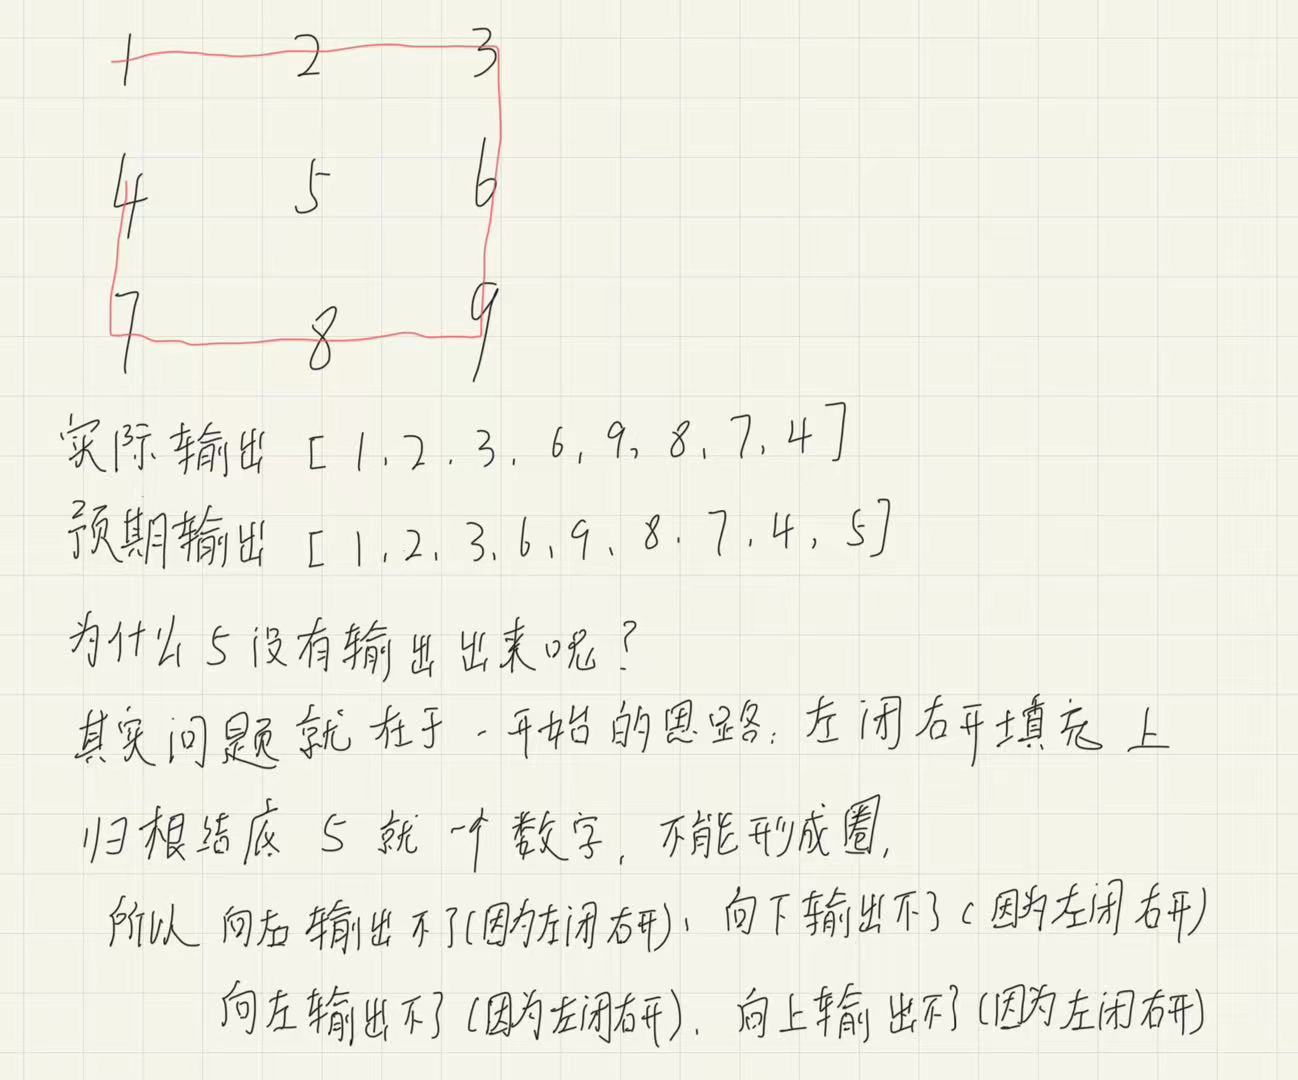 1 2 3
4 5 6
7 8 9
实际输出 [1,2,3,6,9,8,7,4]
预期输出 [1,2,3,6,9,8,7,4,5]
为什么5没有输出出来呢?
其实问题就在于一开始的思路:左闭右开填充上
归根结底 5 就一个数字,不能形成圈,
所以 向右输出不了(因为左闭右开)、向下输出不了(因为左闭右开)
向左输出不了(因为左闭右开)、向上输出不了(因为左闭右开)